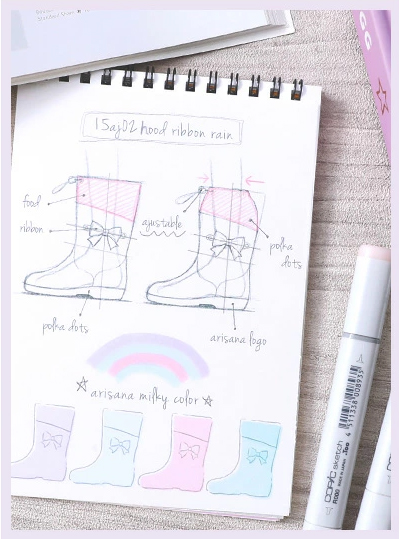 15aj02 hood ribbon rain
food
ribbon
ajustable
polka
dots
polka dots
arisana logo
☆ arisana milky color ☆
4 511338 008935
COPIC sketch